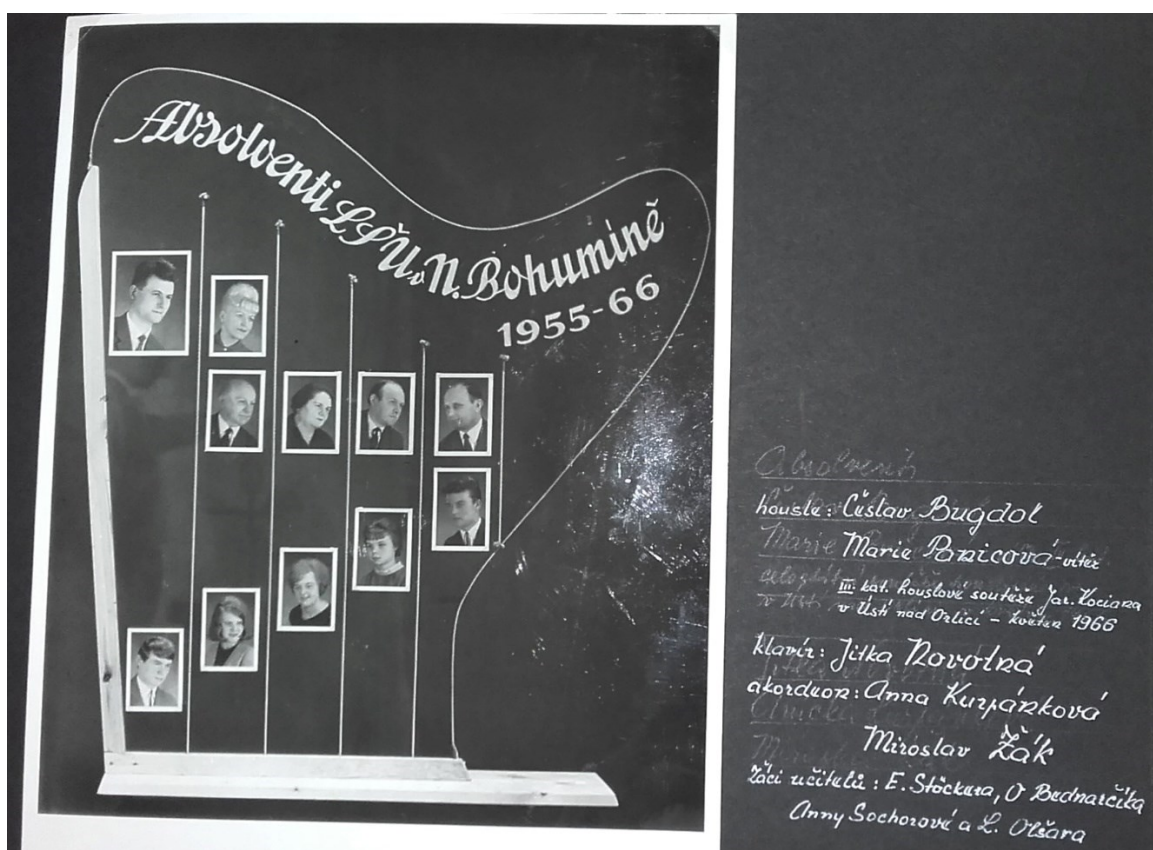 Absolventi LŠU v N. Bohumíně
1955-66
Absolventi
housle: Česlav Bugdol
Marie Panicová - vítěz
III. kat. houslové soutěže Jar. Kociana
v Ústí nad Orlicí - květen 1966
klavír: Jitka Novotná
akordeon: Anna Kurpánková
Miroslav Žák
žáci učitelů: E. Stöckera, O Bednarčíka
Anny Sochorové a L. Olšara